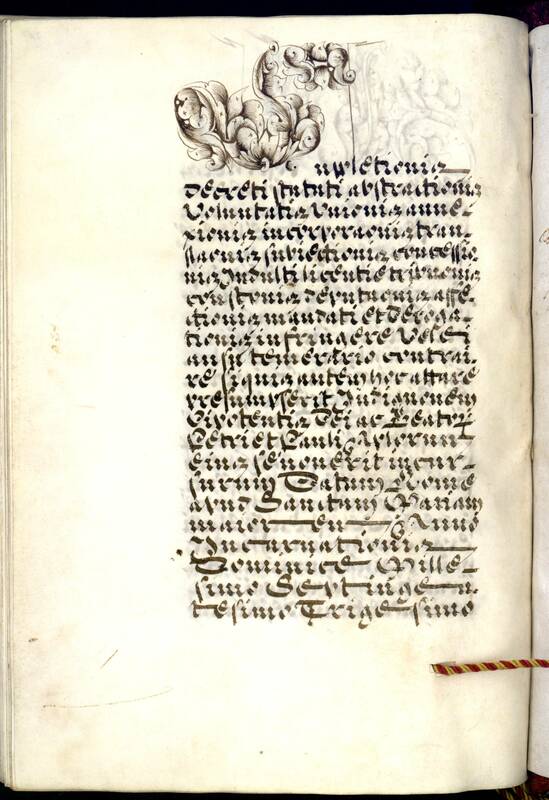 nupletionis
decreti statuti abstractionis
voluntatis unionis anne-
xionis incorporaonis trans-
laonis subiectionis concessio
nis Indulti licentie tribuonis
constonis deputaonis affe-
ctionis mandati et deroga-
tionis infringere vel ei
ausu temerario contrai-
re si quis autem hoc attare
presumpserit Indignonem
Oipotentis Dei ac Beator
Petri et Pauli Aplorum
eius se noverit incur-
surum Datum Rome
apud Sanctam Mariam
maiorem Anno
Incarnationis
Dominice Mille-
simo Septingen-
tesimo Trigesimo